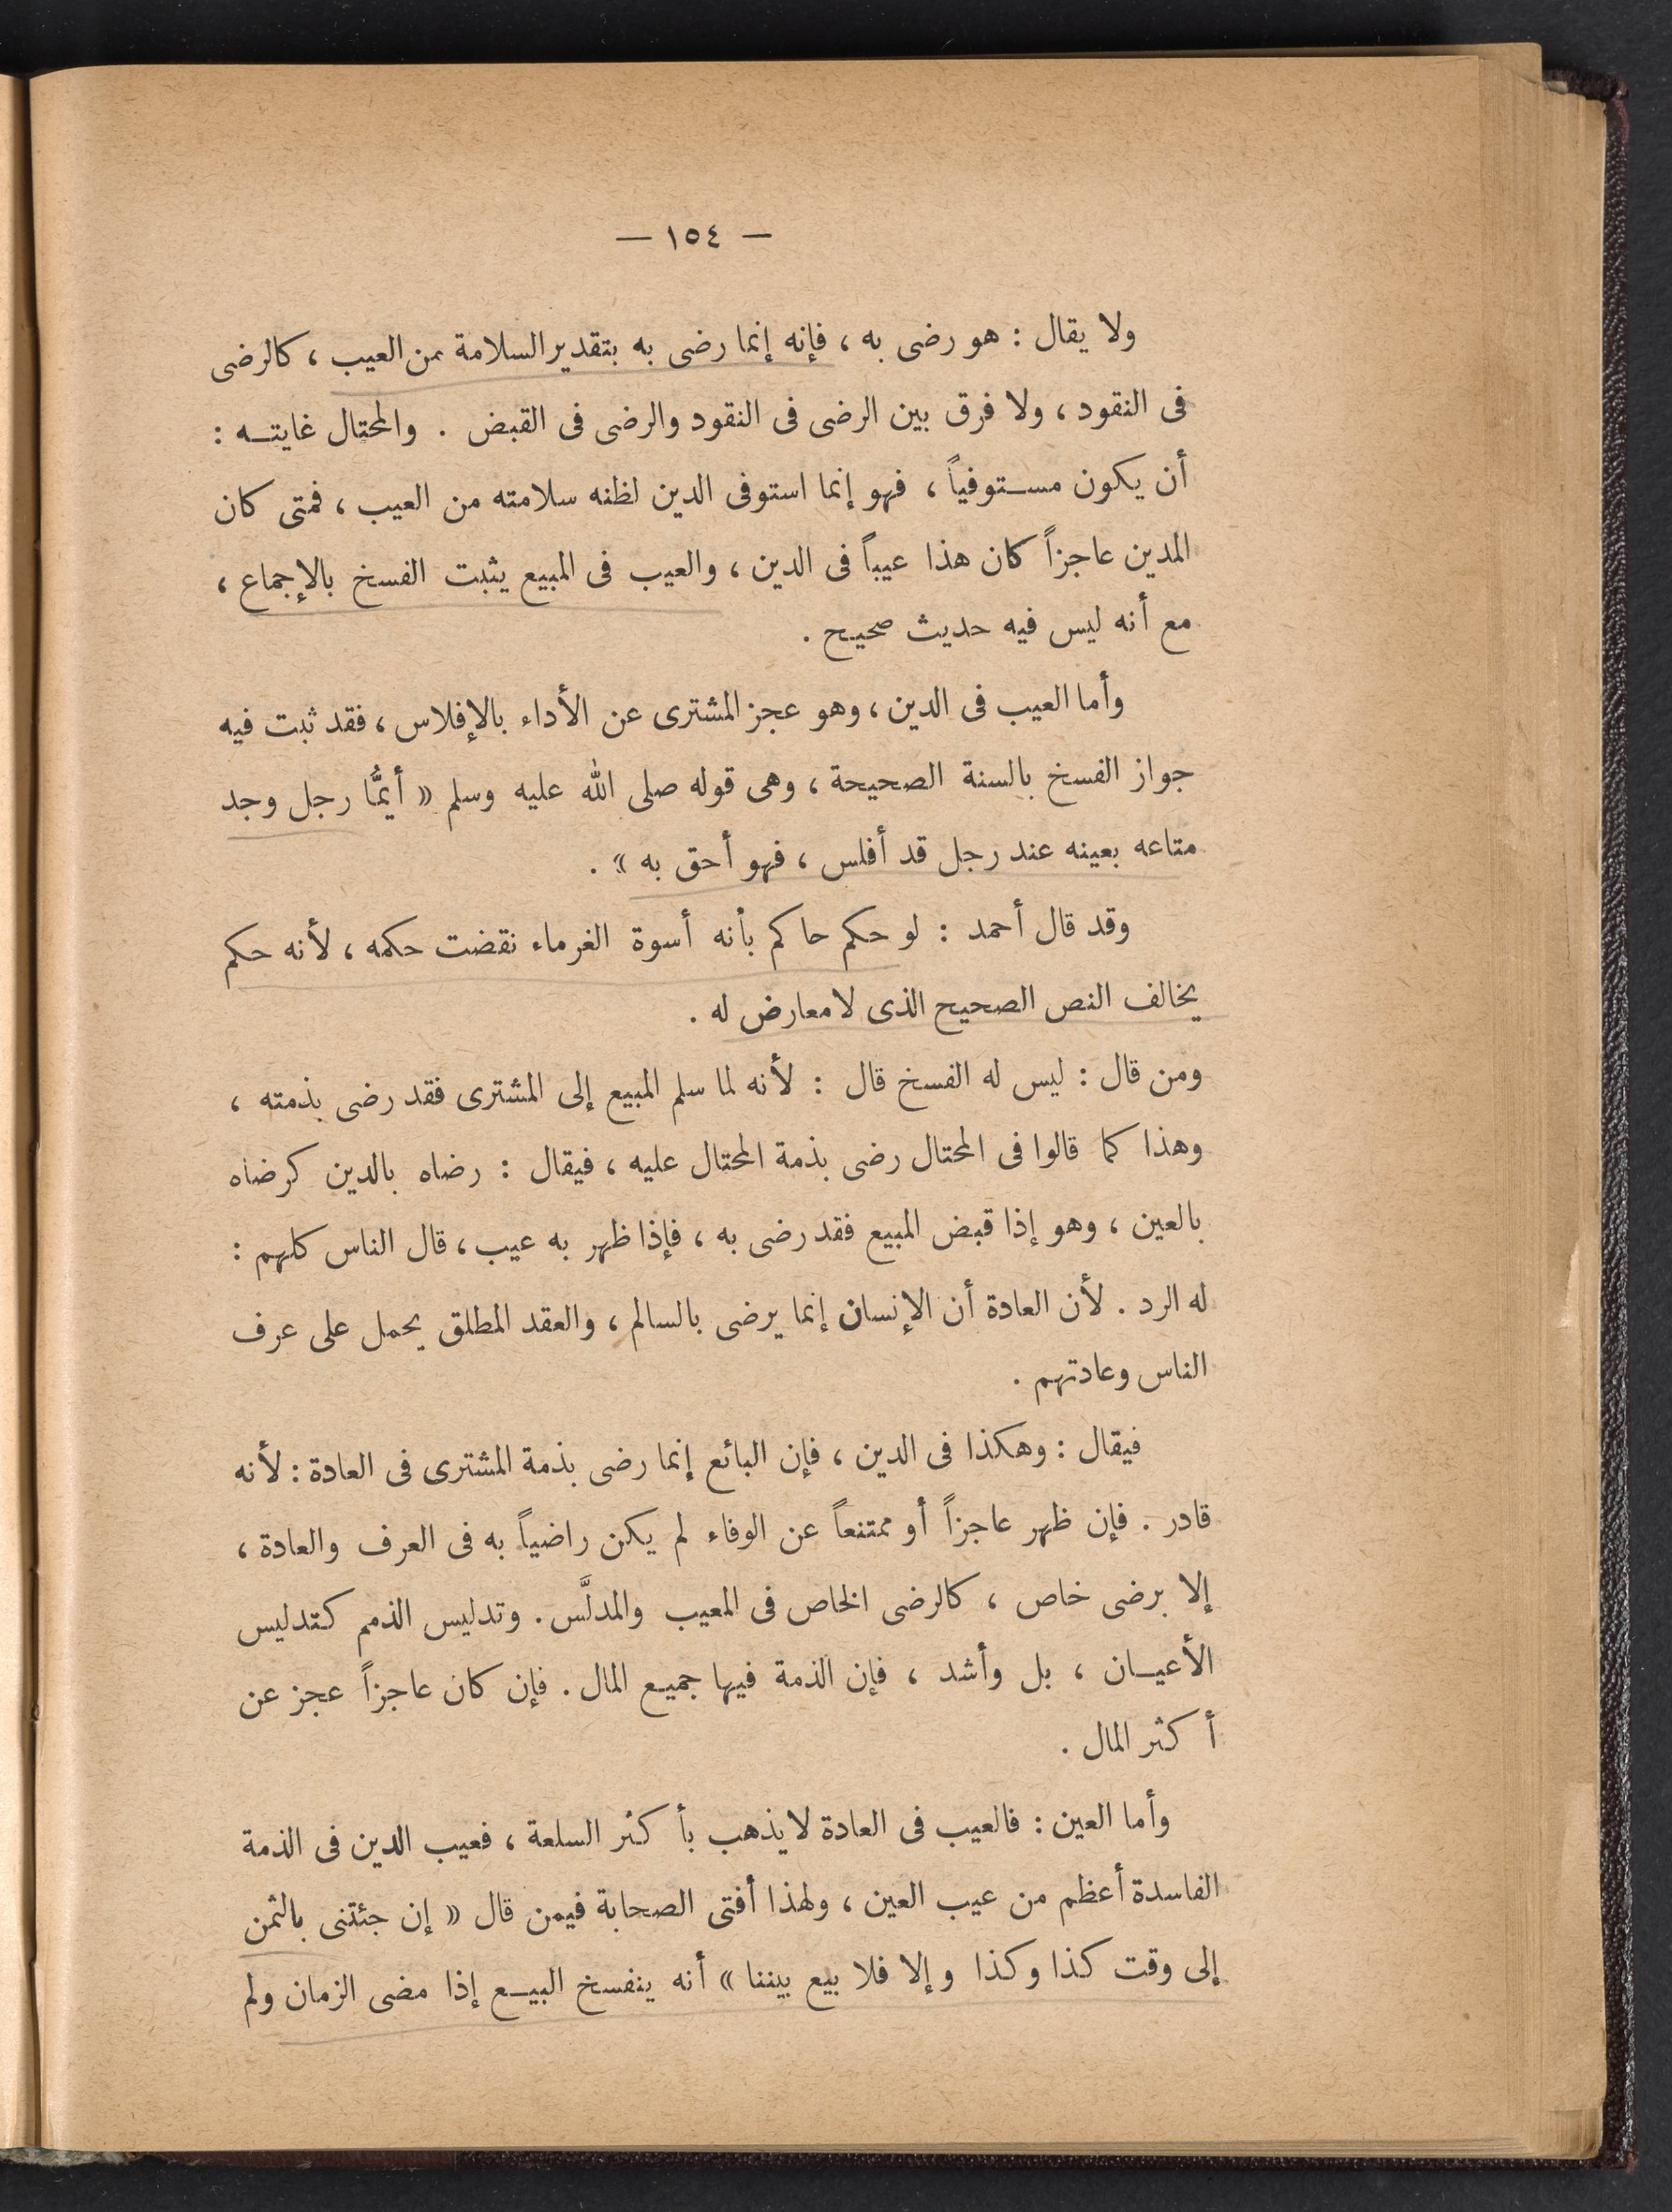 — ١٥٤ —
ولا يقال : هو رضى به ، فإنه إنما رضى به بتقدير السلامة من العيب ، كالرضى
فى النقود ، ولا فرق بين الرضى فى النقود والرضى فى القبض . والمحتال غايتـــه :
أن يكون مســتوفياً ، فهو إنما استوفى الدين لظنه سلامته من العيب ، فمتى كان
المدين عاجزاً كان هذا عيباً فى الدين ، والعيب فى المبيع يثبت الفسخ بالإجماع ،
مع أنه ليس فيه حديث صحيح .
وأما العيب فى الدين ، وهو عجز المشترى عن الأداء بالإفلاس ، فقد ثبت فيه
جواز الفسخ بالسنة الصحيحة ، وهى قوله صلى الله عليه وسلم « أيمُّا رجل وجد
متاعه بعينه عند رجل قد أفلس ، فهو أحق به » .
وقد قال أحمد : لو حكم حاكم بأنه أسوة الغرماء نقضت حكمه ، لأنه حكم
يخالف النص الصحيح الذى لا معارض له .
ومن قال : ليس له الفسخ قال : لأنه لما سلم المبيع إلى المشترى فقد رضى بذمته ،
وهذا كما قالوا فى المحتال رضى بذمة المحتال عليه ، فيقال : رضاه بالدين كرضاه
بالعين ، وهو إذا قبض المبيع فقد رضى به ، فإذا ظهر به عيب ، قال الناس كلهم :
له الرد . لأن العادة أن الإنسان إنما يرضى بالسالم ، والعقد المطلق يحمل على عرف
الناس وعادتهم .
فيقال : وهكذا فى الدين ، فإن البائع إنما رضى بذمة المشترى فى العادة : لأنه
قادر . فإن ظهر عاجزاً أو ممتنعاً عن الوفاء لم يكن راضياً به فى العرف والعادة ،
إلا برضى خاص ، كالرضى الخاص فى المعيب والمدلَّس . وتدليس الذمم كتدليس
الأعيــان ، بل وأشد ، فإن الذمة فيها جميع المال . فإن كان عاجزاً عجز عن
أكثر المال .
وأما العين : فالعيب فى العادة لا يذهب بأكثر السلعة ، فعيب الدين فى الذمة
الفاسدة أعظم من عيب العين ، ولهذا أفتى الصحابة فيمن قال « إن جئتنى بالثمن
إلى وقت كذا وكذا وإلا فلا بيع بيننا » أنه ينفسخ البيــع إذا مضى الزمان ولم